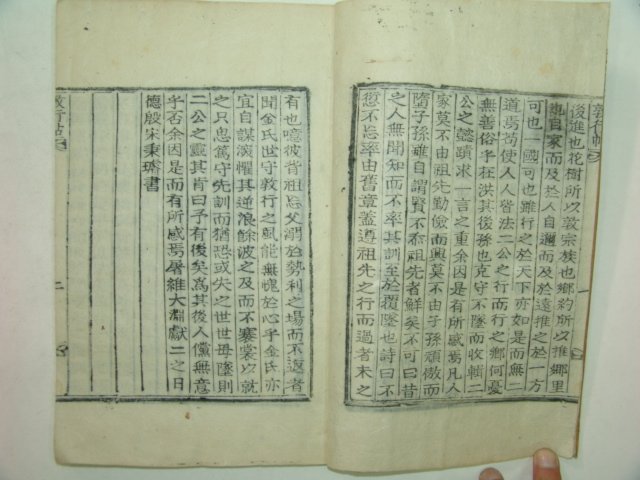 敦行帖
後進也花樹所以敦宗族也鄕約所以推鄕里
也自家而及於人自邇而及於遠推之於一方
可也一國可也雖行之於天下亦如是而無二
道焉苟使人人皆法二公之行而行之鄕何憂
無善俗乎枉洪其後孫也克守不墜而收輯二
公之懿蹟求一言之重余因是而有所感焉凡人
家莫不由祖先勤儉而興莫不由子孫頑傲而
墮子孫雖自謂賢不忝祖先者鮮矣不可曰昔
之人無聞知而不率其訓至於覆墜也詩曰不
愆不忘率由舊章蓋遵祖先之行而過者未之
有也噫彼背祖忘父溺於勢利之場而不返者
聞金氏世守敦行之風能無愧於心乎金氏亦
宜自謀演懼其逆浪餘波之及而不褰裳以就
之只思篤守先訓而猶恐或失之世世毋墜則
二公之靈其肯曰予有後矣爲其後人儻無意
乎否余因是而有所感焉屠維大淵獻二之日
德殷宋秉璿書
敦行帖
二